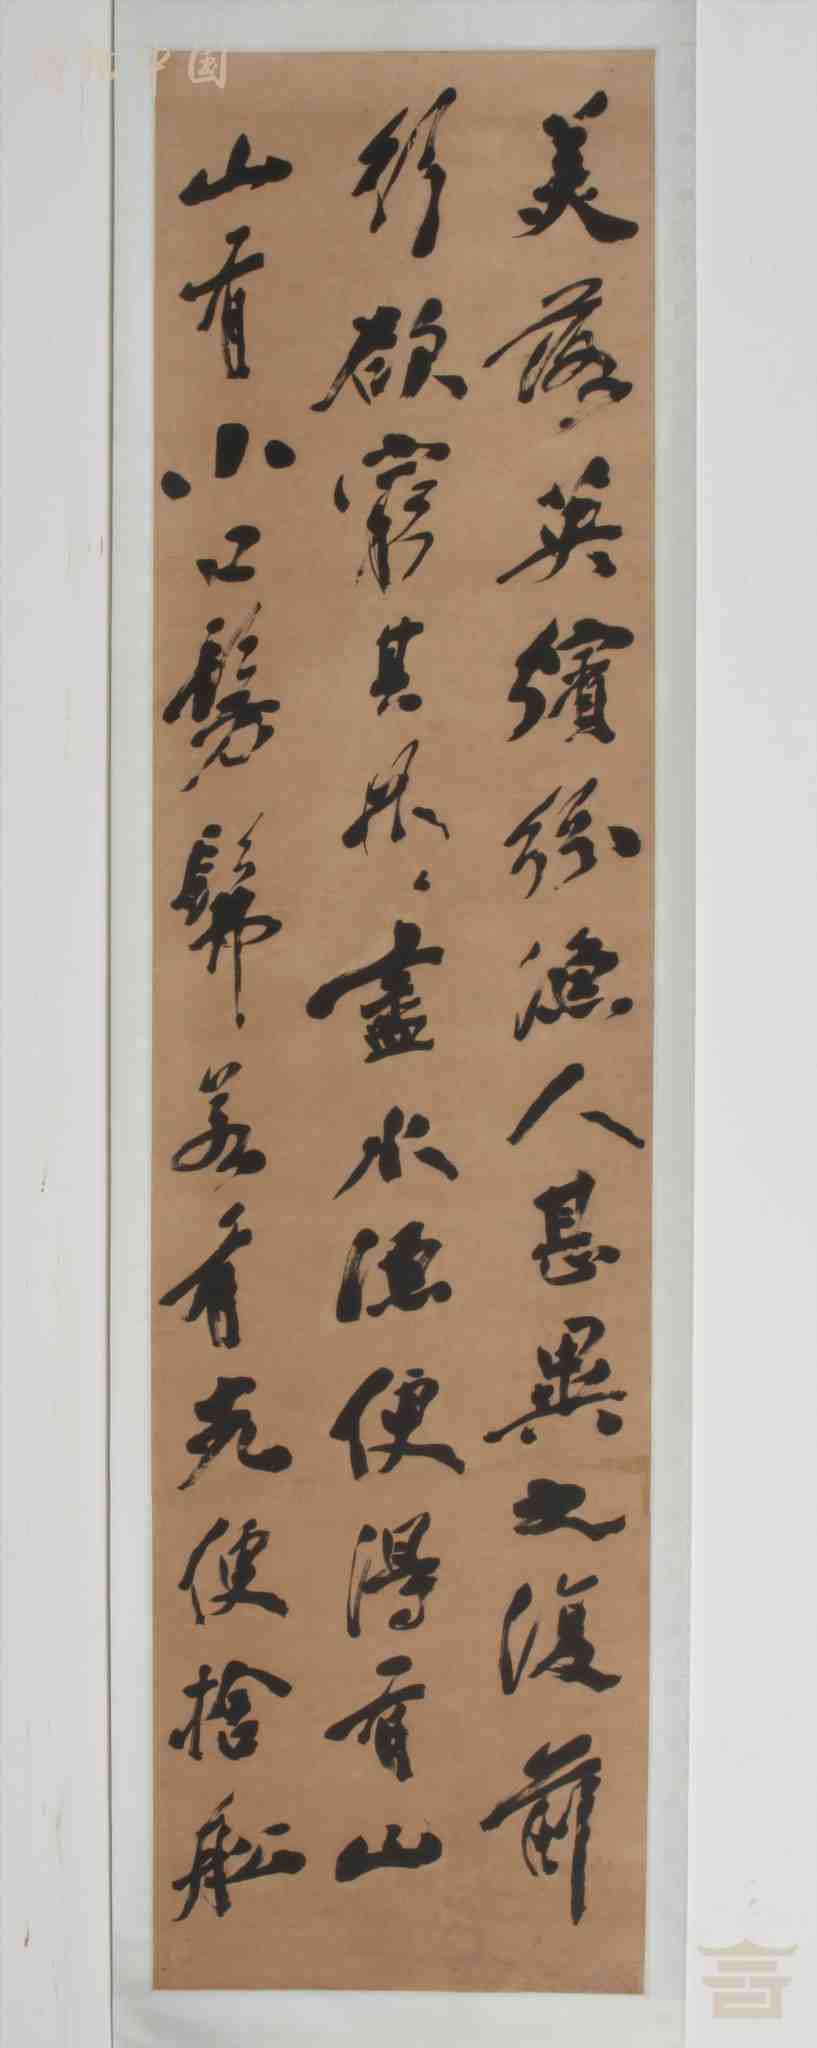 美落英繽紛漁人甚異之復前
行欲窮其林〻盡水源便得有山
山有小口髣髴若有光便捨舡
中国